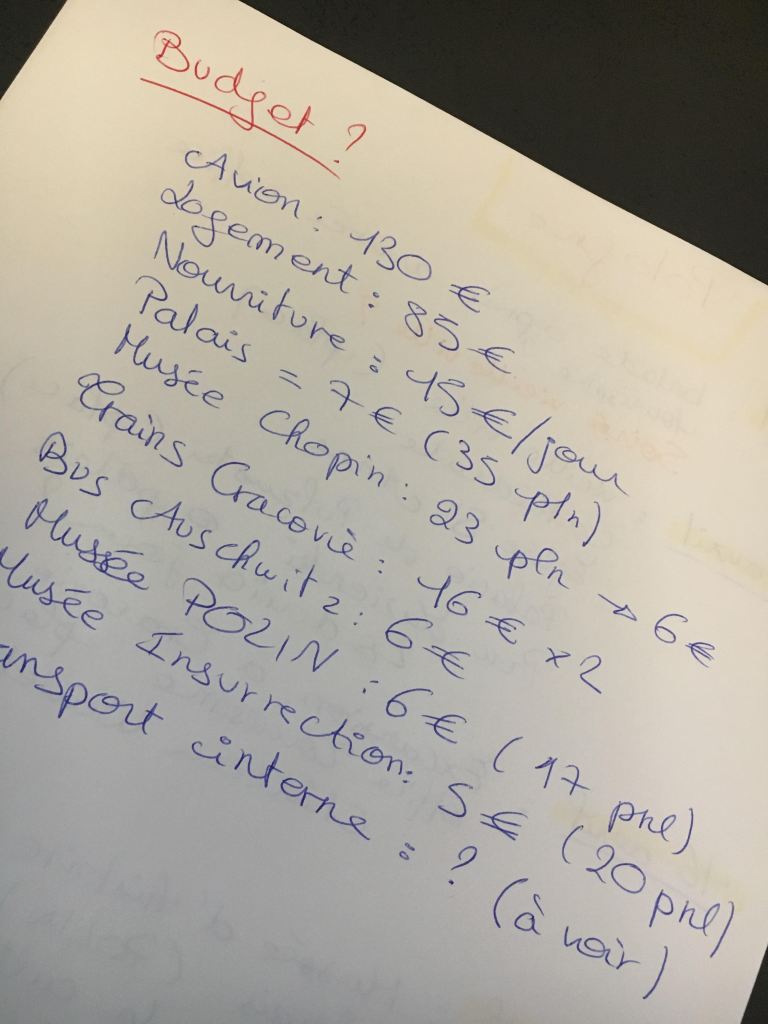 Budget ?
Avion : 130 €
Logement : 85 €
Nourriture : 15 €/jour
Palais = 7 € (35 pln)
Musée Chopin : 23 pln → 6 €
Trains Cracovie : 16 € x2
Bus Auschwitz : 6 €
Musée POLIN : 6 € (17 pnl)
Musée Insurrection : 5 € (20 pnl)
ansport interne : ? (à voir)